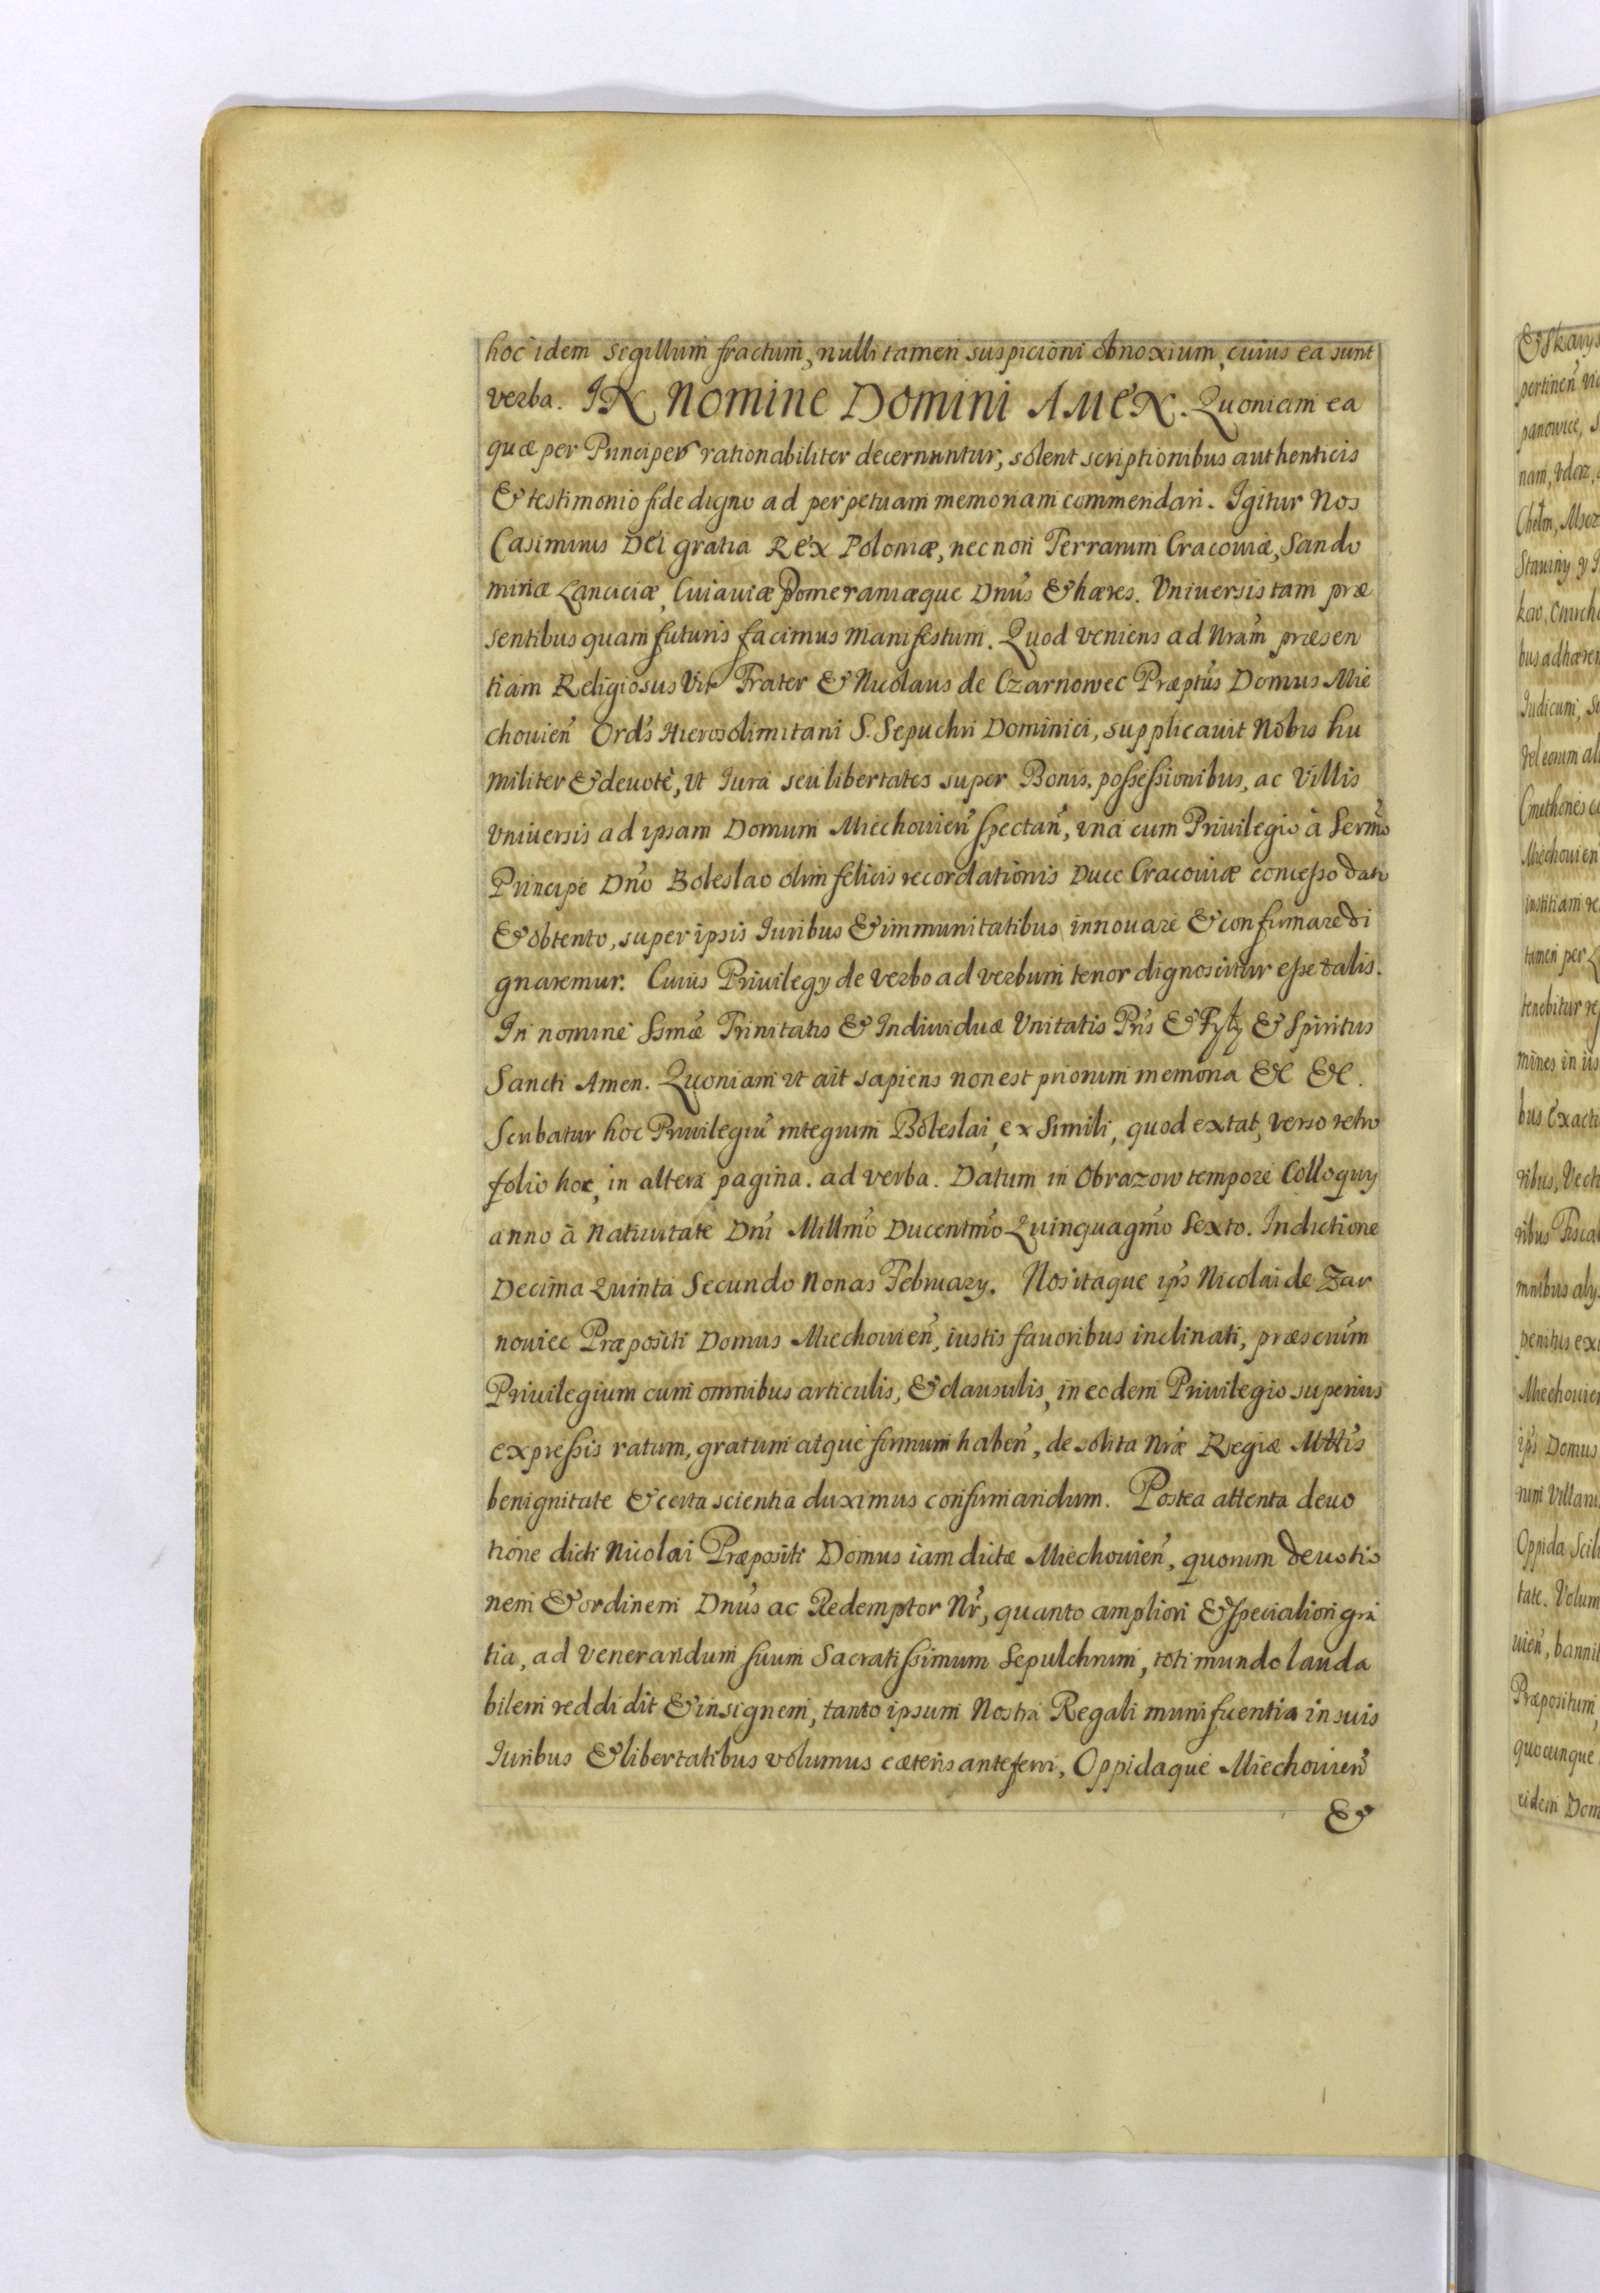 hoc idem sigillum fractum, nulli tamen suspicioni obnoxium, cuius ea sunt
verba. IN NOMINE DOMINI AMEN. Quoniam ea
quæ per Principes rationabiliter decernuntur, solent scriptionibus authenticis
& testimonio fide digno ad perpetuam memoriam commendari. Igitur Nos
Casimirus Dei gratia Rex Poloniæ, nec non Terrarum Cracoviæ, Sando
miriæ Lanciciæ, Cuiauiæ Pomeraniæque Dnús & hæres. Vniuersis tam præ
sentibus quam futuris facimus manifestum. Quod veniens ad Nrám præsen
tiam Religiosus Vir Frater & Nicolaus de Czarnowec Præptús Domus Mie
chouień Ordís Hierosolimitani S. Sepuchri Dominici, supplicauit Nobis hu
militer & deuotè, vt Iura seu libertates super Bonis, possessionibus, ac Villis
vniuersis ad ipsam Domum Miechouień spectań, vná cum Priuilegio à Sermó
Principe Dnó Boleslao olim felicis recordationis Duce Cracouiæ concesso dato
& obtento, super ipsis Iuribus & immunitatibus innouare & confirmare di
gnaremur. Cuius Priuilegy de verbo ad verbum tenor dignoscitur esse talis.
In nomine Ssmæ Trinitatis & Indiuiduæ Vnitatis Prís & Fyly & Spiritus
Sancti Amen. Quoniam vt ait sapiens non est priorum memoria &c &c.
Scribatur hoc Priuilegiú integrum Boleslai, ex simili, quod extat, verso retro
folio hoc, in altera pagina. ad verba. Datum in Obrazow tempore Colloquy
anno à Natiuitate Dní Millmó Ducentmó Quinquagmó Sexto. Indictione
Decima Quinta Secundo Nonas February. Nos itaque ipś Nicolai de Zar
nouiec Præpositi Domus Miechouień, iustis fauoribus inclinati, præscrúm
Priuilegium cum omnibus articulis, & clausulis, in eodem Priuilegio superius
expressis ratum, gratum atque firmum habeń, de solita Nræ Regiæ Mttís
benignitate & certa scientia duximus confirmandum. Postea attenta deuo
tione dicti Nicolai Præpositi Domus iam dictæ Miechouień, quorum deuotio
nem & ordinem Dnús ac Redemptor Nŕ, quanto ampliori & speciali­ori gra
tia, ad venerandum suum Sacratissimum Sepulchrum, toti mundo lauda
bilem reddidit & insignem, tanto ipsum Nostra Regali munificentia in suis
Iuribus & libertatibus volumus cæteris anteferri, Oppidaque Miechouień
&